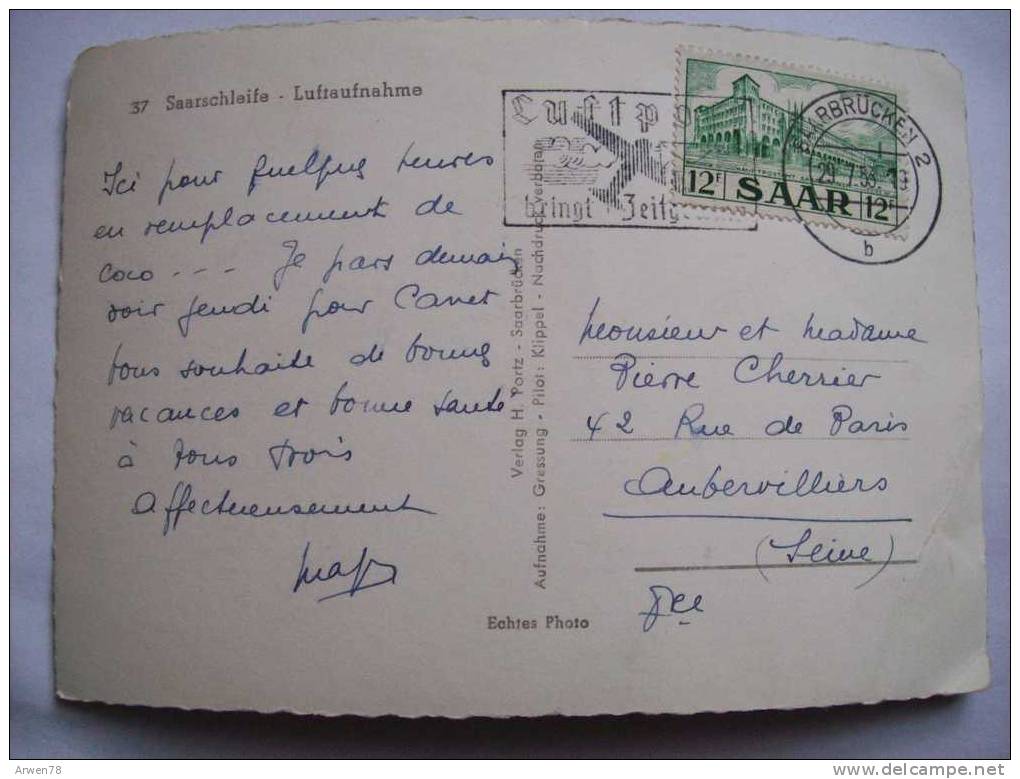 37 Saarschleife - Luftaufnahme
Ici pour quelques heures
en remplacement de
Coco --- Je pars demain
soir jeudi pour Canet
vous souhaite de bonnes
vacances et bonne santé
à vous trois
Affectueusement
Verlag H. Portz - Saarbrücken
Aufnahme: Gressung - Pilot: Klippel - Nachdruck verboten
Echtes Photo
Luftpo
bringt Zeitge
12F SAAR 12F
SAARBRÜCKEN 2
29.7.53
b
Monsieur et Madame
Pierre Cherrier
42 Rue de Paris
Aubervilliers
(Seine)
Fce
Arwen78